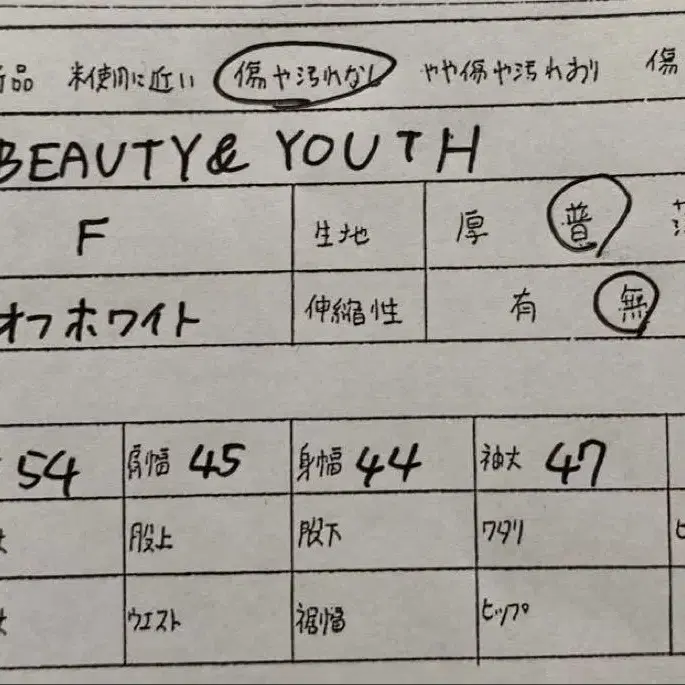 品 未使用に近い 傷や汚れなし やや傷や汚れあり 傷
BEAUTY& YOUTH
F 生地 厚 普
オフホワイト 伸縮性 有 無
54 肩幅 45 身幅 44 袖丈 47
股上 股下 ワタリ
ウエスト 裾幅 ヒップ